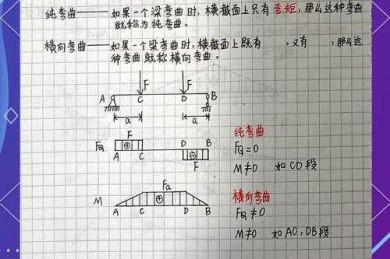 纯弯曲——如果一个梁弯曲时,横截面上只有弯矩,那么这种弯曲
就称为纯弯曲。
横向弯曲——如果一个梁弯曲时,横截面上既有 ,又有 ,那么这
种弯曲就称横向弯曲。
F F
A C D B
a a
FQ F ⊕ D B 纯弯曲
A C ⊖ FQ=0
F M≠0 如CD段
Fa 横向弯曲
M ⊕ FQ≠0
A C D B M≠0 如AC,DB段